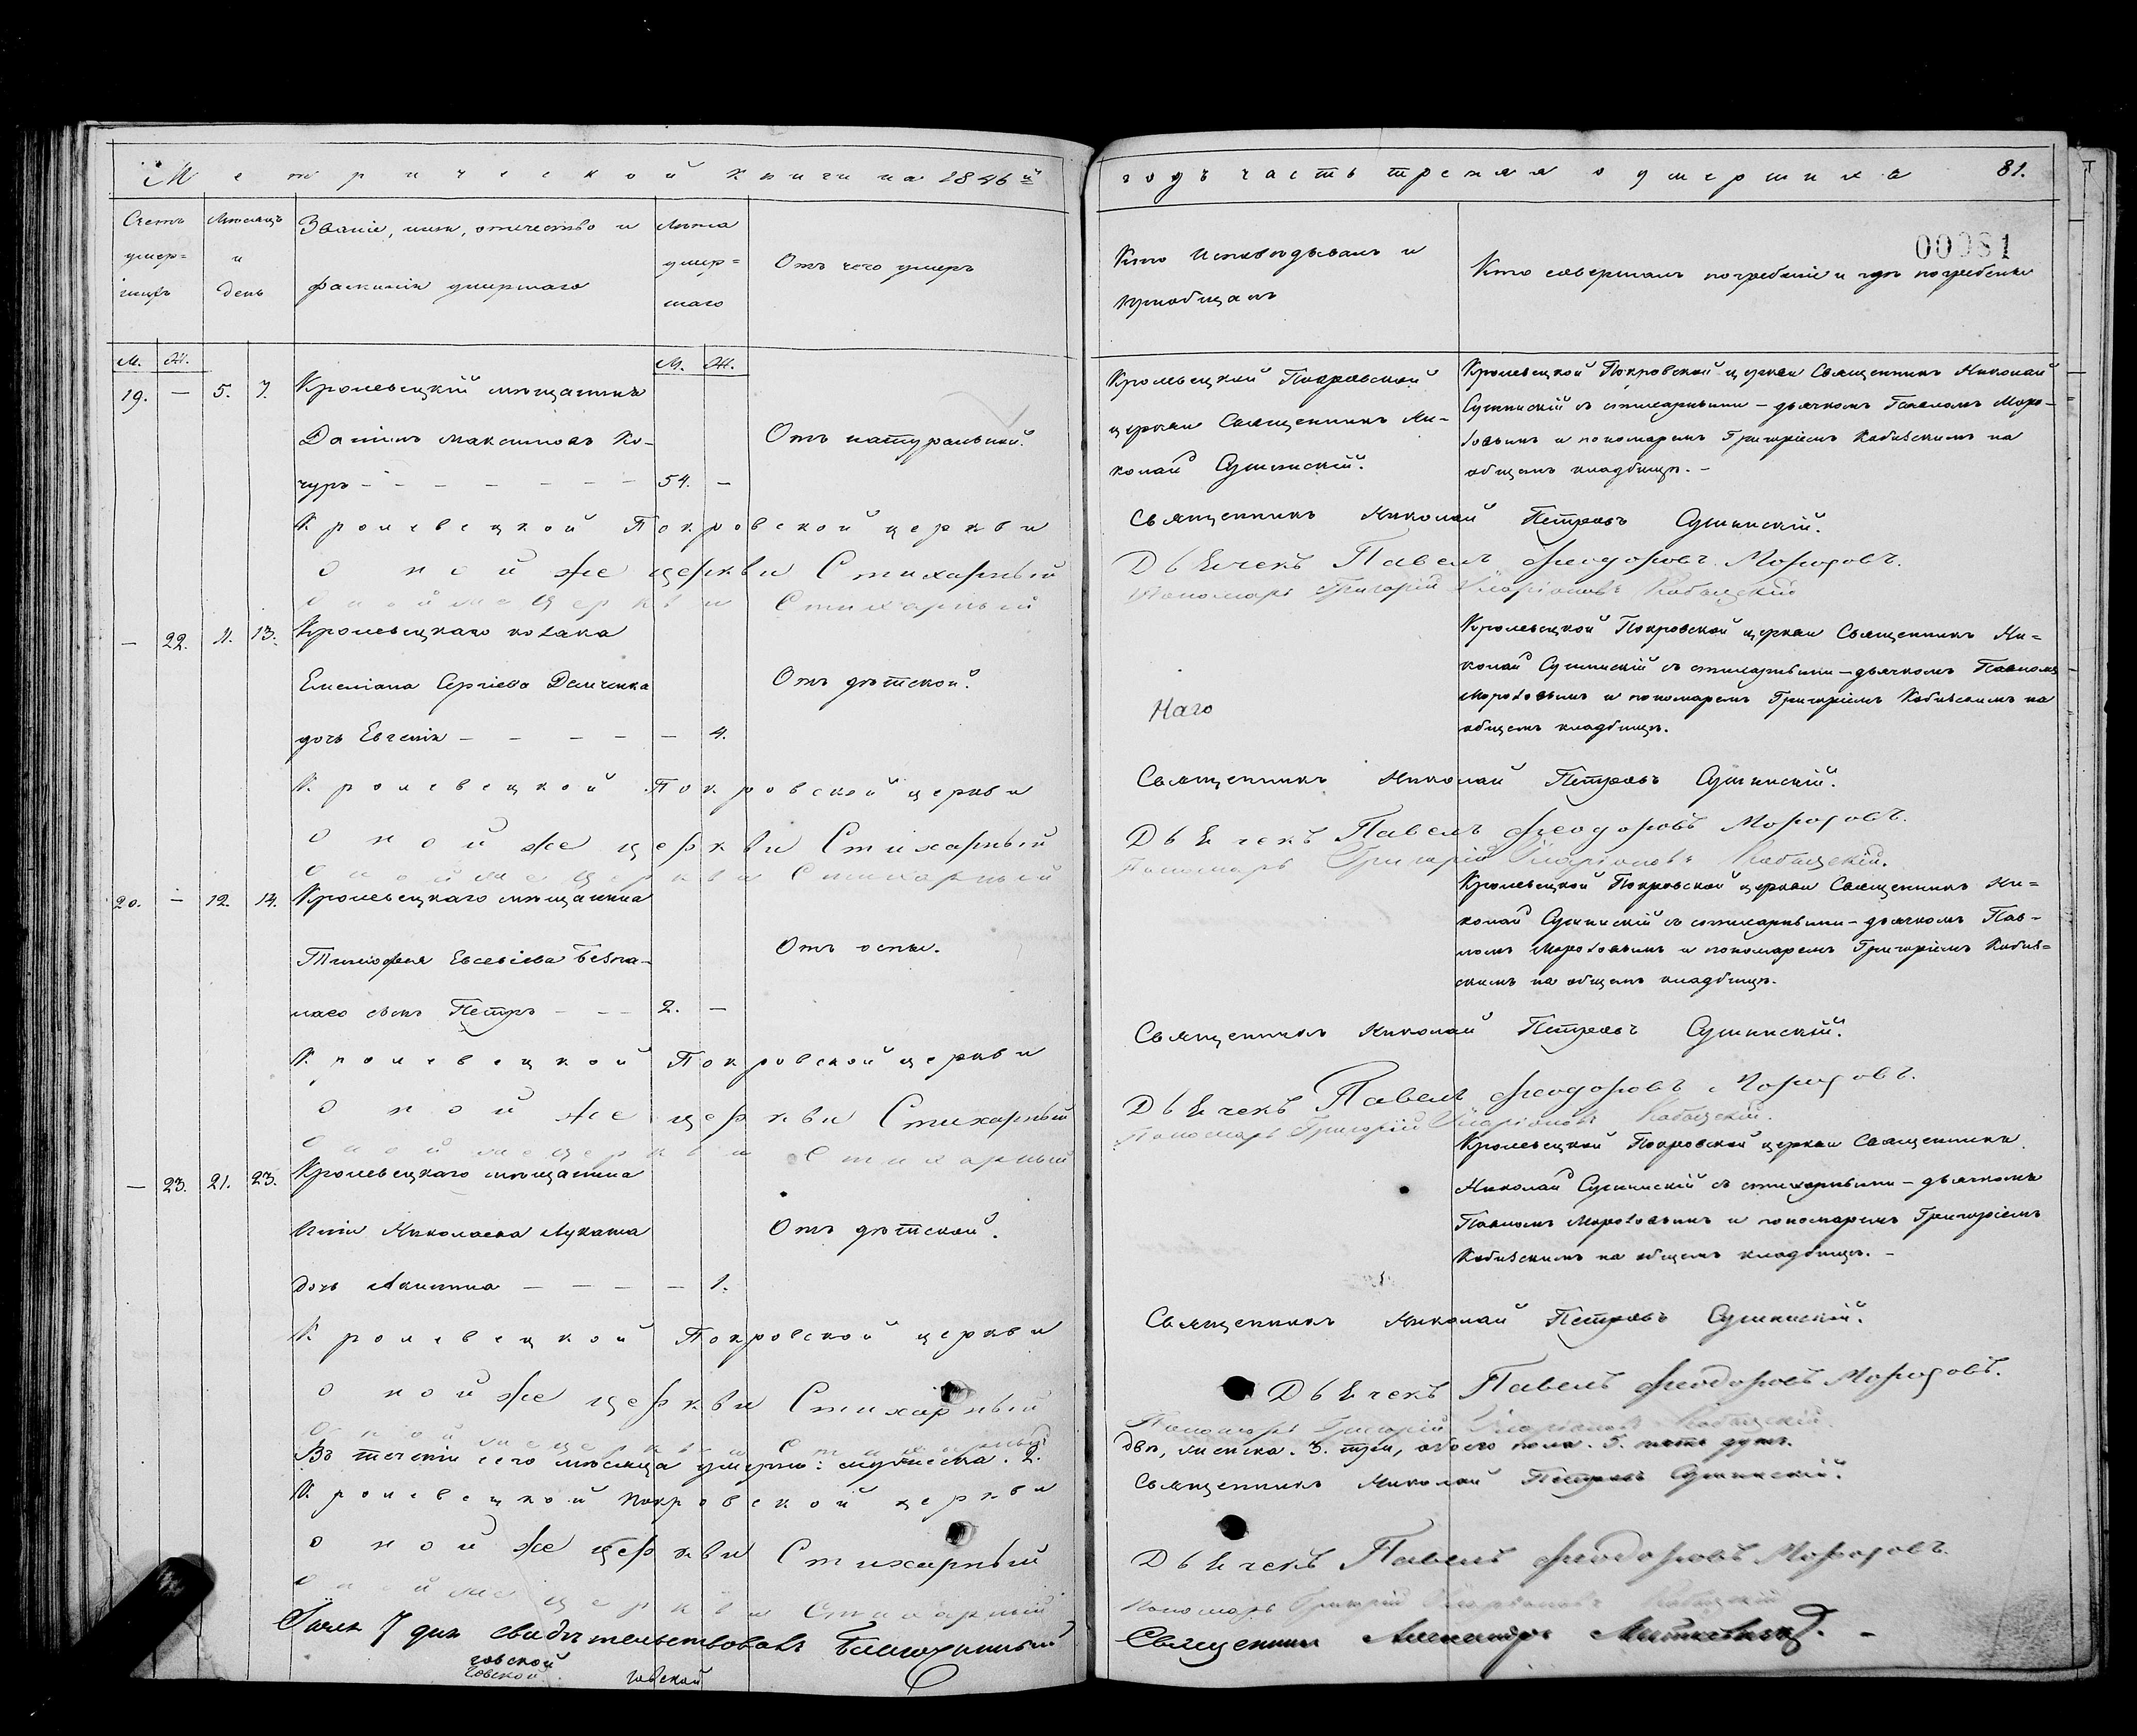 Метрической книги на 1846й
Счетъ умер= шихъ
Мѣсяцъ и день
Званіе, имя, отчество и
фамилія умершаго
Лѣта умер= шаго
Отъ чего умеръ
М. Ж.
М. Ж.
19. — 5. 7. Кролевецкій мѣщанинъ
Даніилъ Максимовъ Ко-
чуръ - - - - - - - 54. —
Отъ натуральной.
Кролевецкой Покровской церкви
Оной же церкви Стихарный
Оной же церкви Стихарный
— 22. 11. 13. Кролевецкаго козака
Емеліана Сергіева Демченка
дочь Евгенія - - - - - — 4.
Отъ дѣтской.
Кролевецкой Покровской церкви
Оной же церкви Стихарный
Оной же церкви Стихарный
20. — 12. 14. Кролевецкаго мѣщанина
Тимофея Евсевіева
сынъ Петръ - - - 2. —
Отъ оспы.
Кролевецкой Покровской церкви
Оной же церкви Стихарный
Оной же церкви Стихарный
— 23. 21. 23. Кролевецкаго мѣщанина
Николаева Лукаша
дочь Акилина - - - - — 1.
Отъ дѣтской.
Кролевецкой Покровской церкви
Оной же церкви Стихарный
Оной же церкви Стихарный
Въ теченіи сего мѣсяца умерло: мужеска. 2.
Кролевецкой Покровской церкви
Оной же церкви Стихарный
Оной же церкви Стихарный
7 дня свидѣтельствовалъ Благочинный
говской
говской
говской
годъ часть третяя о умершихъ 81.
00081
Кто исповѣдывалъ и
пріобщалъ
Кто совершалъ погребеніе и гдѣ погребены
Кролевецкой Покровской
церкви Священникъ Ни-
колай Сушинскій.
Кролевецкой Покровской церкви Священникъ Николай
Сушинскій съ стихарными - дьячкомъ Павломъ Моро-
зовымъ и пономаремъ Григоріемъ Кобизскимъ на
общемъ кладбищѣ. -
Священникъ Николай Петровъ Сушинскій.
Дьячекъ Павелъ Феодоровъ Морозовъ.
Пономарь Григорій Иларіоновъ Кобызскій
Кролевецкой Покровской церкви Священникъ Ни=
колай Сушинскій съ стихарными - дьячкомъ Павломъ
Морозовымъ и пономаремъ Григоріемъ Кобизскимъ на
общемъ кладбищѣ.
Священникъ Николай Петровъ Сушинскій.
Дьячекъ Павелъ Феодоровъ Морозовъ.
Пономарь Григорій Иларіоновъ Кобызскій.
Кролевецкой Покровской церкви Священникъ Ни=
колай Сушинскій съ стихарными - дьячкомъ Пав-
ломъ Морозовымъ и пономаремъ Григоріемъ Кобиз=
скимъ на общемъ кладбищѣ.
Священникъ Николай Петровъ Сушинскій.
Дьячекъ Павелъ Феодоровъ Морозовъ.
Пономарь Григорій Иларіоновъ Кобызскій.
Кролевецкой Покровской церкви Священникъ
Николай Сушинскій съ стихарными - дьячкомъ
Павломъ Морозовымъ и пономаремъ Григоріемъ
Кобизскимъ на общемъ кладбищѣ. -
Священникъ Николай Петровъ Сушинскій.
Дьячекъ Павелъ Феодоровъ Морозовъ.
Пономарь Григорій Иларіоновъ Кобызскій.
два, женска. 3. три, обоего пола. 5. пять душъ.
Священникъ Николай Петровъ Сушинскій.
Дьячекъ Павелъ Феодоровъ Морозовъ.
Пономарь Григорій Иларіоновъ Кобызскій
Священникъ Александръ